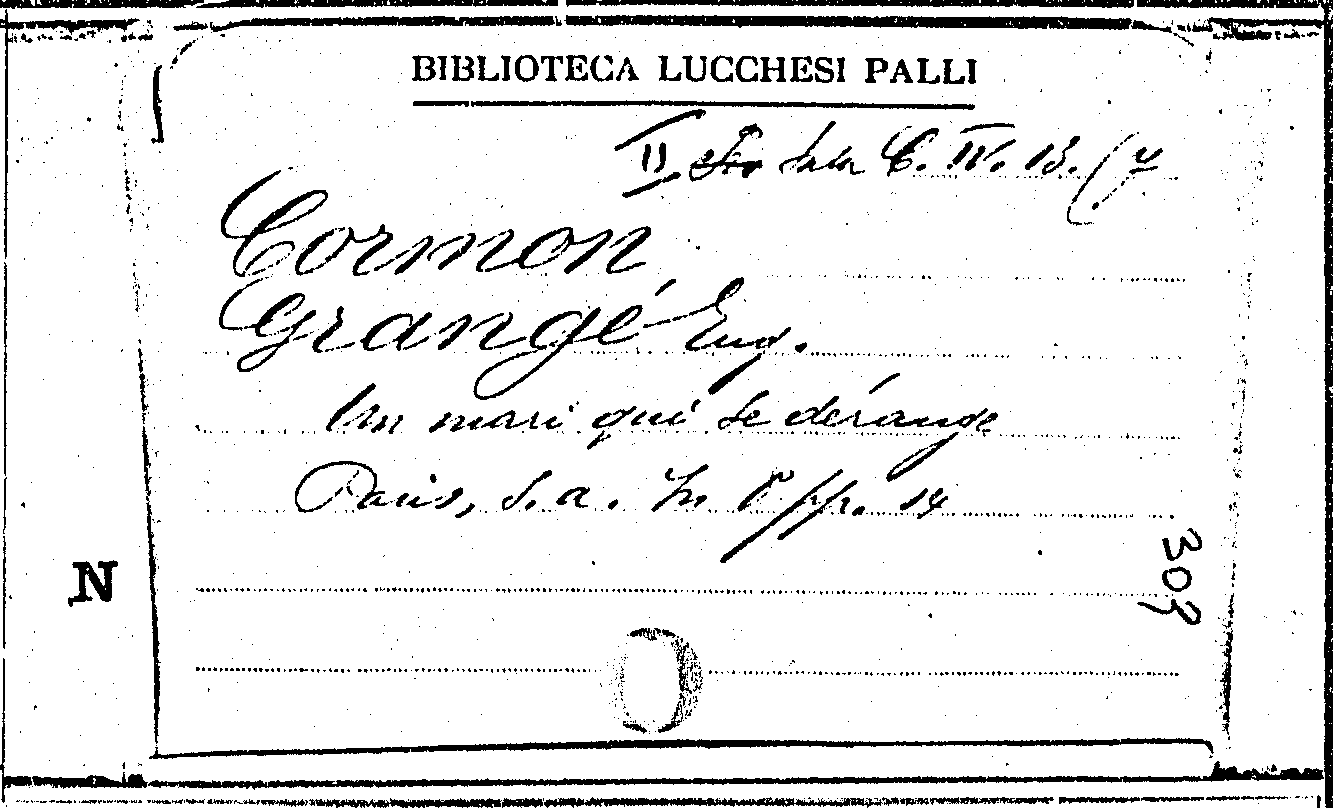 BIBLIOTECA LUCCHESI PALLI
II Sala C. IV. 13. (7
Cormon
Grangé Eug.
Un mari qui se dérange
Paris, s. a. In 8° pp. 14
303
N